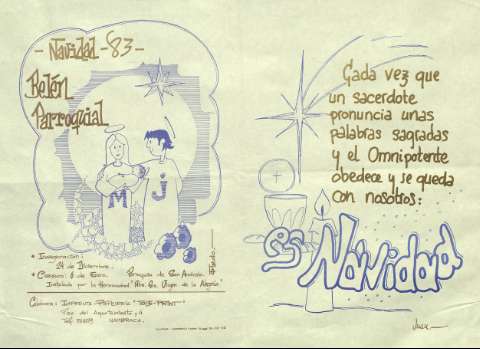 - Navidad - 83 -
Belén
Parroquial
M J
* Inauguración:
24 de Diciembre.
* Clausura: 6 de Enero. Parroquia de San
Instalado por la Hermandad Ntra. Sra. Virgen de la Alegría"
Colabora: Imprenta - Papelería
Plaza del Ayuntamiento,
Telf.
Cada vez que
un sacerdote
pronuncia unas
palabras sagradas
y el Omnipotente
obedece y se queda
con nosotros:
es Navidad